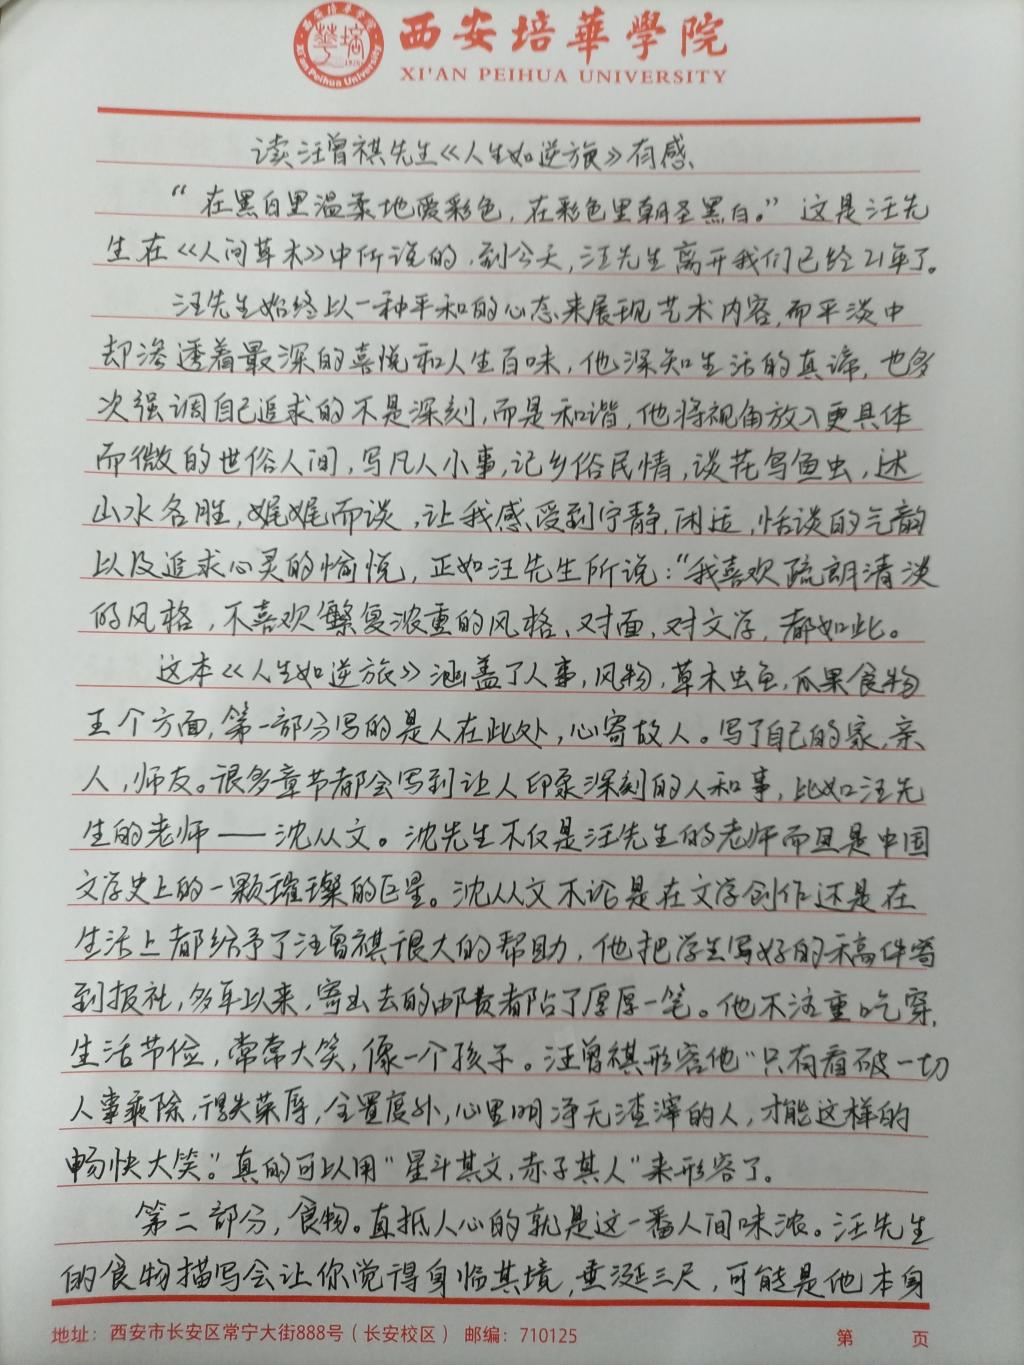 西安培華學院
XI'AN PEIHUA UNIVERSITY
读汪曾祺先生《人生如逆旅》有感
“在黑白里温柔地爱彩色，在彩色里朝圣黑白。”这是汪先
生在《人间草木》中所说的，到今天，汪先生离开我们已经21年了。
汪先生始终以一种平和的心态来展现艺术内容，而平淡中
却渗透着最深的喜悦和人生百味，他深知生活的真谛，也多
次强调自己追求的不是深刻，而是和谐，他将视角放入更具体
而微的世俗人间，写凡人小事，记乡俗民情，谈花鸟鱼虫，述
山水名胜，娓娓而谈，让我感受到宁静，闲适，恬谈的气韵
以及追求心灵的愉悦，正如汪先生所说：“我喜欢疏朗清淡
的风格，不喜欢繁复浓重的风格、对画，对文学，都如此。
这本《人生如逆旅》涵盖了人事，风物，草木虫鱼，瓜果食物
五个方面，第一部分写的是人在此处，心寄故人。写了自己的家，亲
人，师友。很多章节都会写到让人印象深刻的人和事，比如汪先
生的老师——沈从文。沈先生不仅是汪先生的老师而且是中国
文学史上的一颗璀璨的巨星。沈从文不论是在文学创作还是在
生活上都给予了汪曾祺很大的帮助，他把学生写好的稿件寄
到报社，多年以来，寄出去的邮费都占了厚厚一笔。他不注重吃穿，
生活节俭，常常大笑，像一个孩子。汪曾祺形容他“只有看破一切
人事乘除，得失荣辱，全置度外，心里明净无渣滓的人，才能这样的
畅快大笑。”真的可以用“星斗其文，赤子其人”来形容了。
第二部分，食物。直抵人心的就是这一番人间味浓。汪先生
的食物描写会让你觉得身临其境，垂涎三尺，可能是他本身
地址：西安市长安区常宁大街888号（长安校区） 邮编：710125 第 页